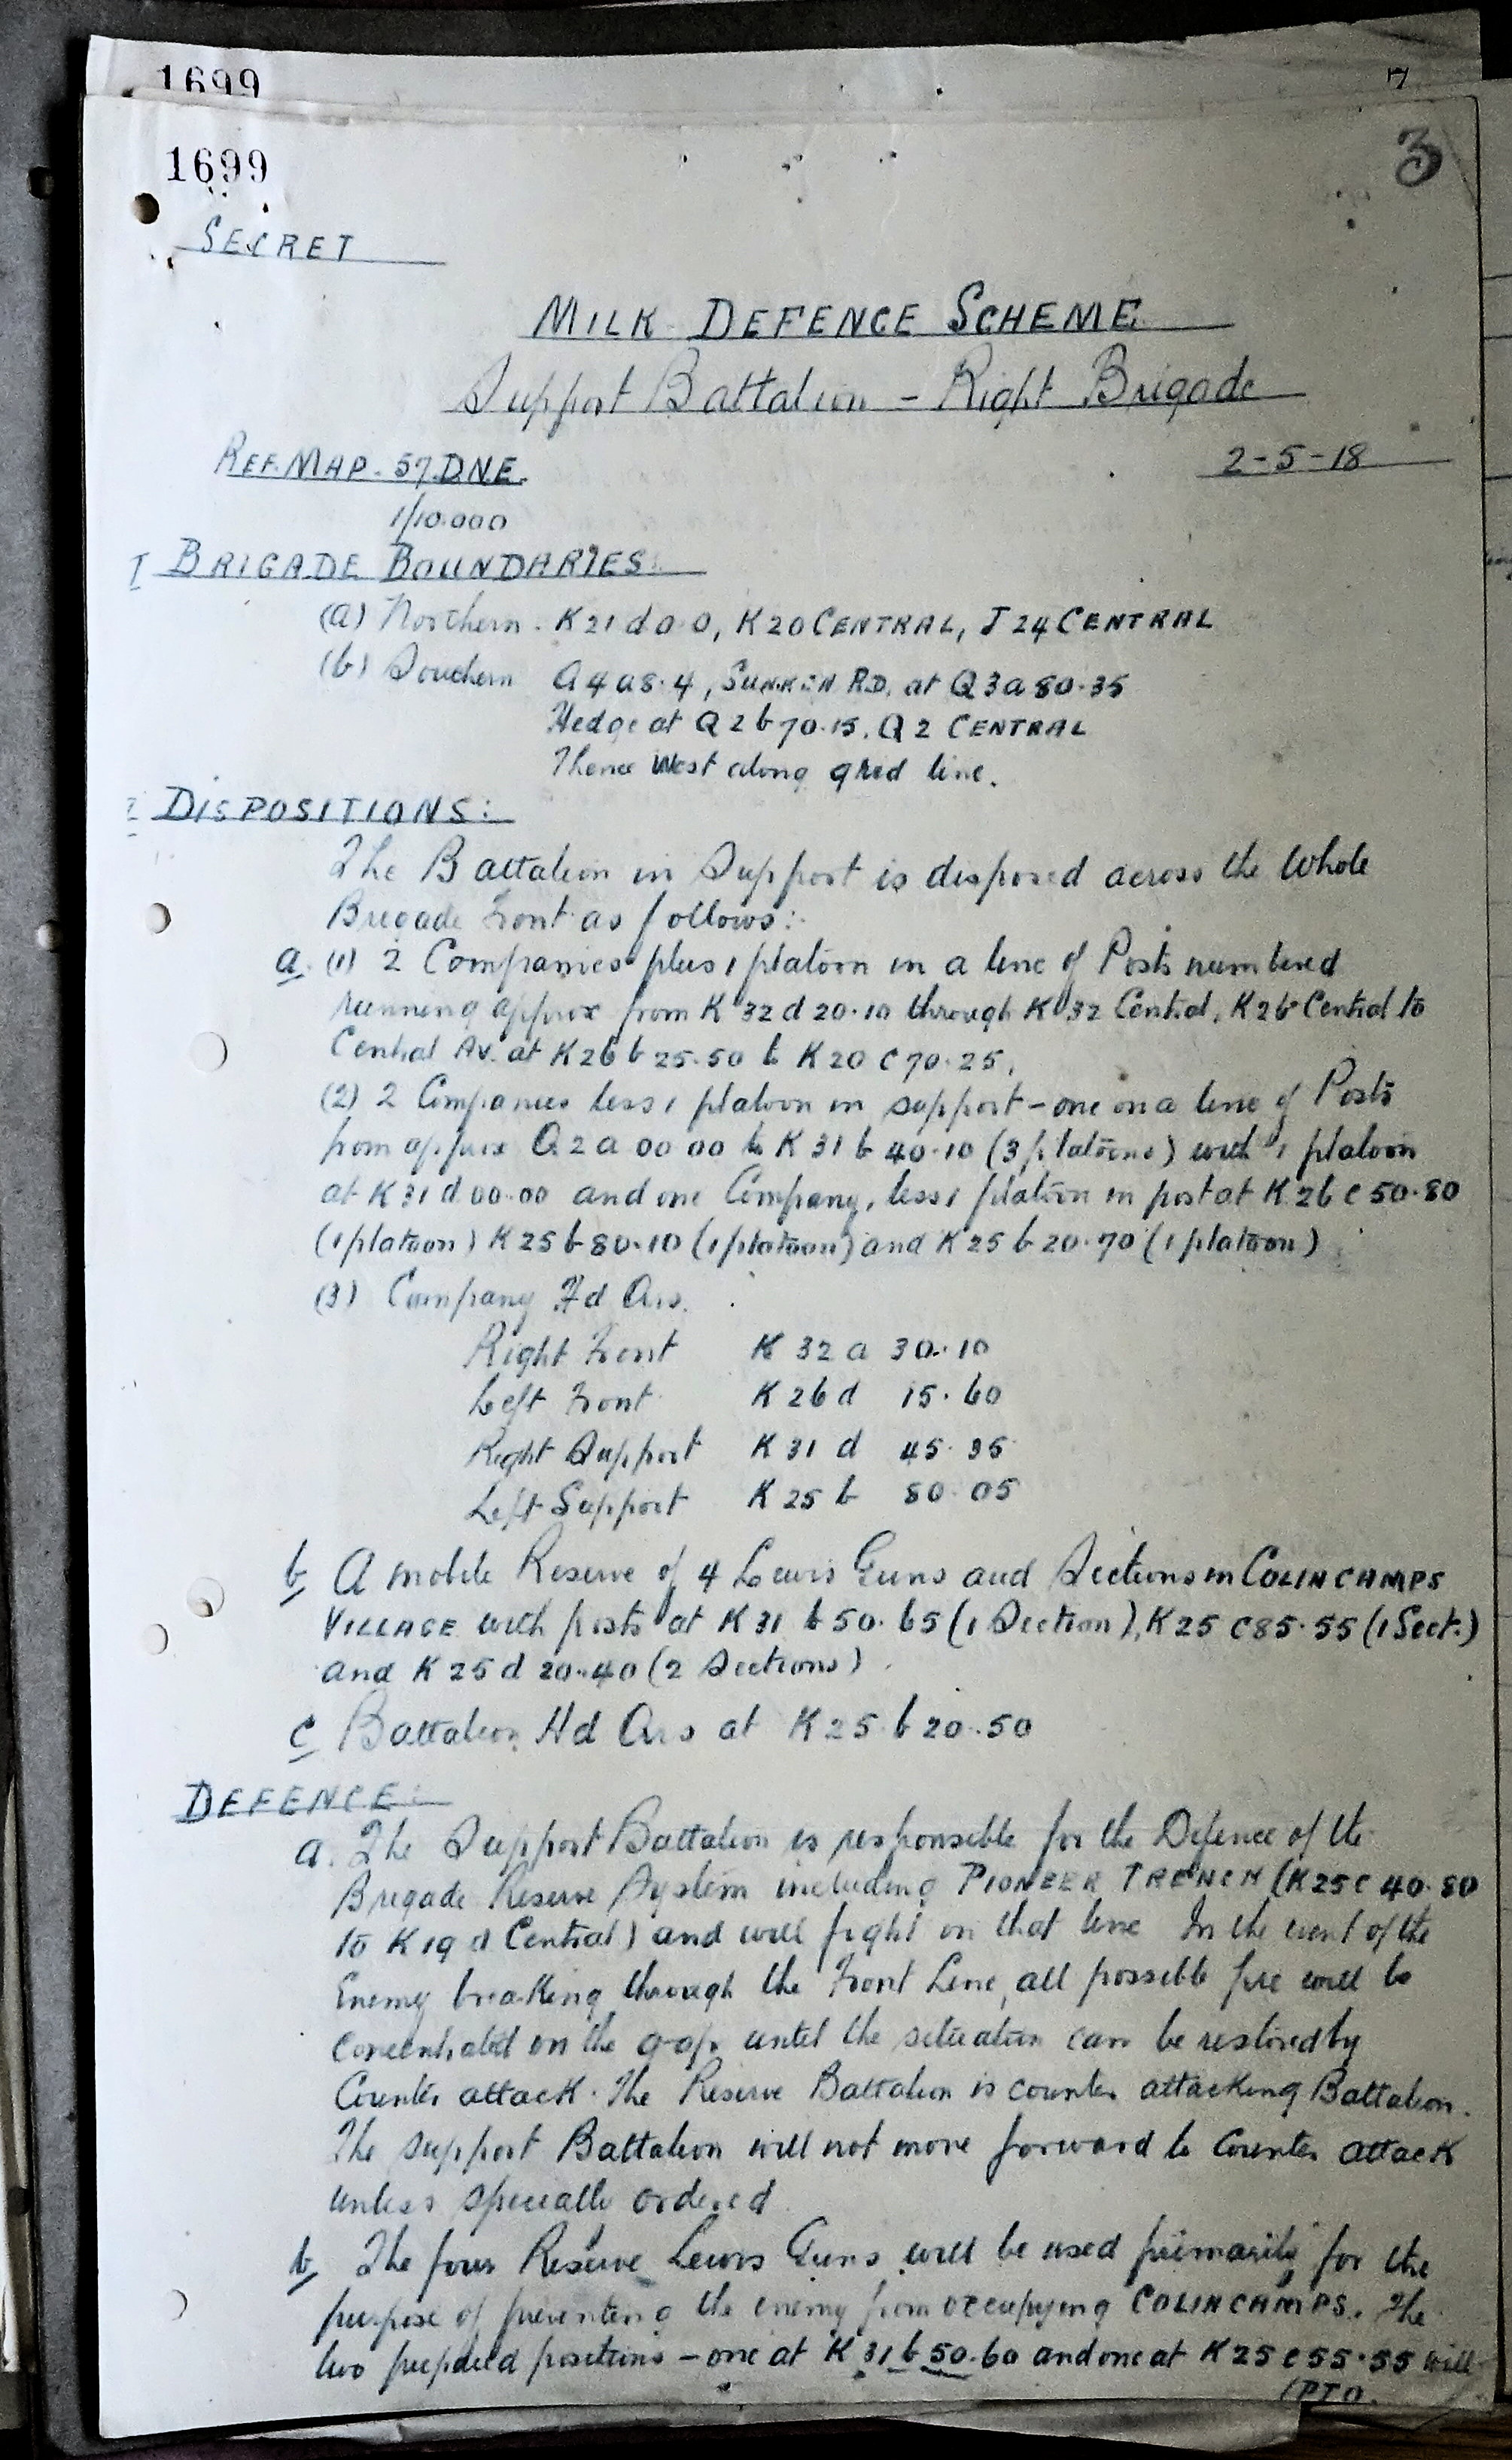 1699
7
1699
3
SECRET
MILK DEFENCE SCHEME
Support Battalion - Right Brigade
REF. MAP. 57.D.N.E.
2-5-18
1/10.000
I BRIGADE BOUNDARIES:
(a) Northern. K21d0.0, K20 CENTRAL, J24 CENTRAL
(b) Southern Q4a8.4, SUNKEN RD. at Q3a80.35
Hedge at Q2b70.15. Q2 CENTRAL
Thence West along grid line.
DISPOSITIONS:
The Battalion in Support is disposed across the whole
Brigade Front as follows:-
a. (1) 2 Companies plus 1 platoon in a line of Posts numbered
running approx from K32d20.10 through K32 Central, K26 Central to
Central Av. at K26b25.50 to K20c70.25.
(2) 2 Companies less 1 platoon in support - one on a line of Posts
from approx Q2a00.00 to K31b40.10 (3 platoons) with 1 platoon
at K31d00.00 and one Company, less 1 platoon in post at K26c50.80
(1 platoon) K25b80.10 (1 platoon) and K25b20.70 (1 platoon)
(3) Company Hd Qrs.
Right Front K32a 30.10
Left Front K26d 15.60
Right Support K31d 45.35
Left Support K25b 80.05
b A mobile Reserve of 4 Lewis Guns and Sections in COLINCAMPS
VILLAGE with posts at K31b50.65 (1 Section), K25c85.55 (1 Sect.)
and K25d20.40 (2 Sections)
c Battalion Hd Qrs at K25.b20.50
DEFENCE:-
a. The Support Battalion is responsible for the Defence of the
Brigade Reserve System including PIONEER TRENCH (K25c40.80
to K19d Central) and will fight on that line In the event of the
Enemy breaking through the Front Line, all possible fire will be
concentrated on the gap until the situation can be restored by
Counter attack. The Reserve Battalion is counter attacking Battalion.
The support Battalion will not move forward to Counter attack
unless specially ordered
b The four Reserve Lewis Guns will be used primarily for the
purpose of preventing the enemy from occupying COLINCAMPS. The
two prepared positions - one at K31b50.60 and one at K25c55.55 will
(PTO.